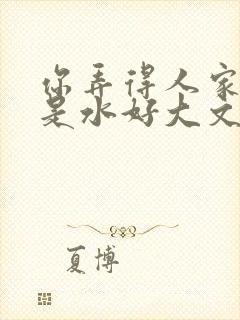 你弄得人家
是水好大文
夏博